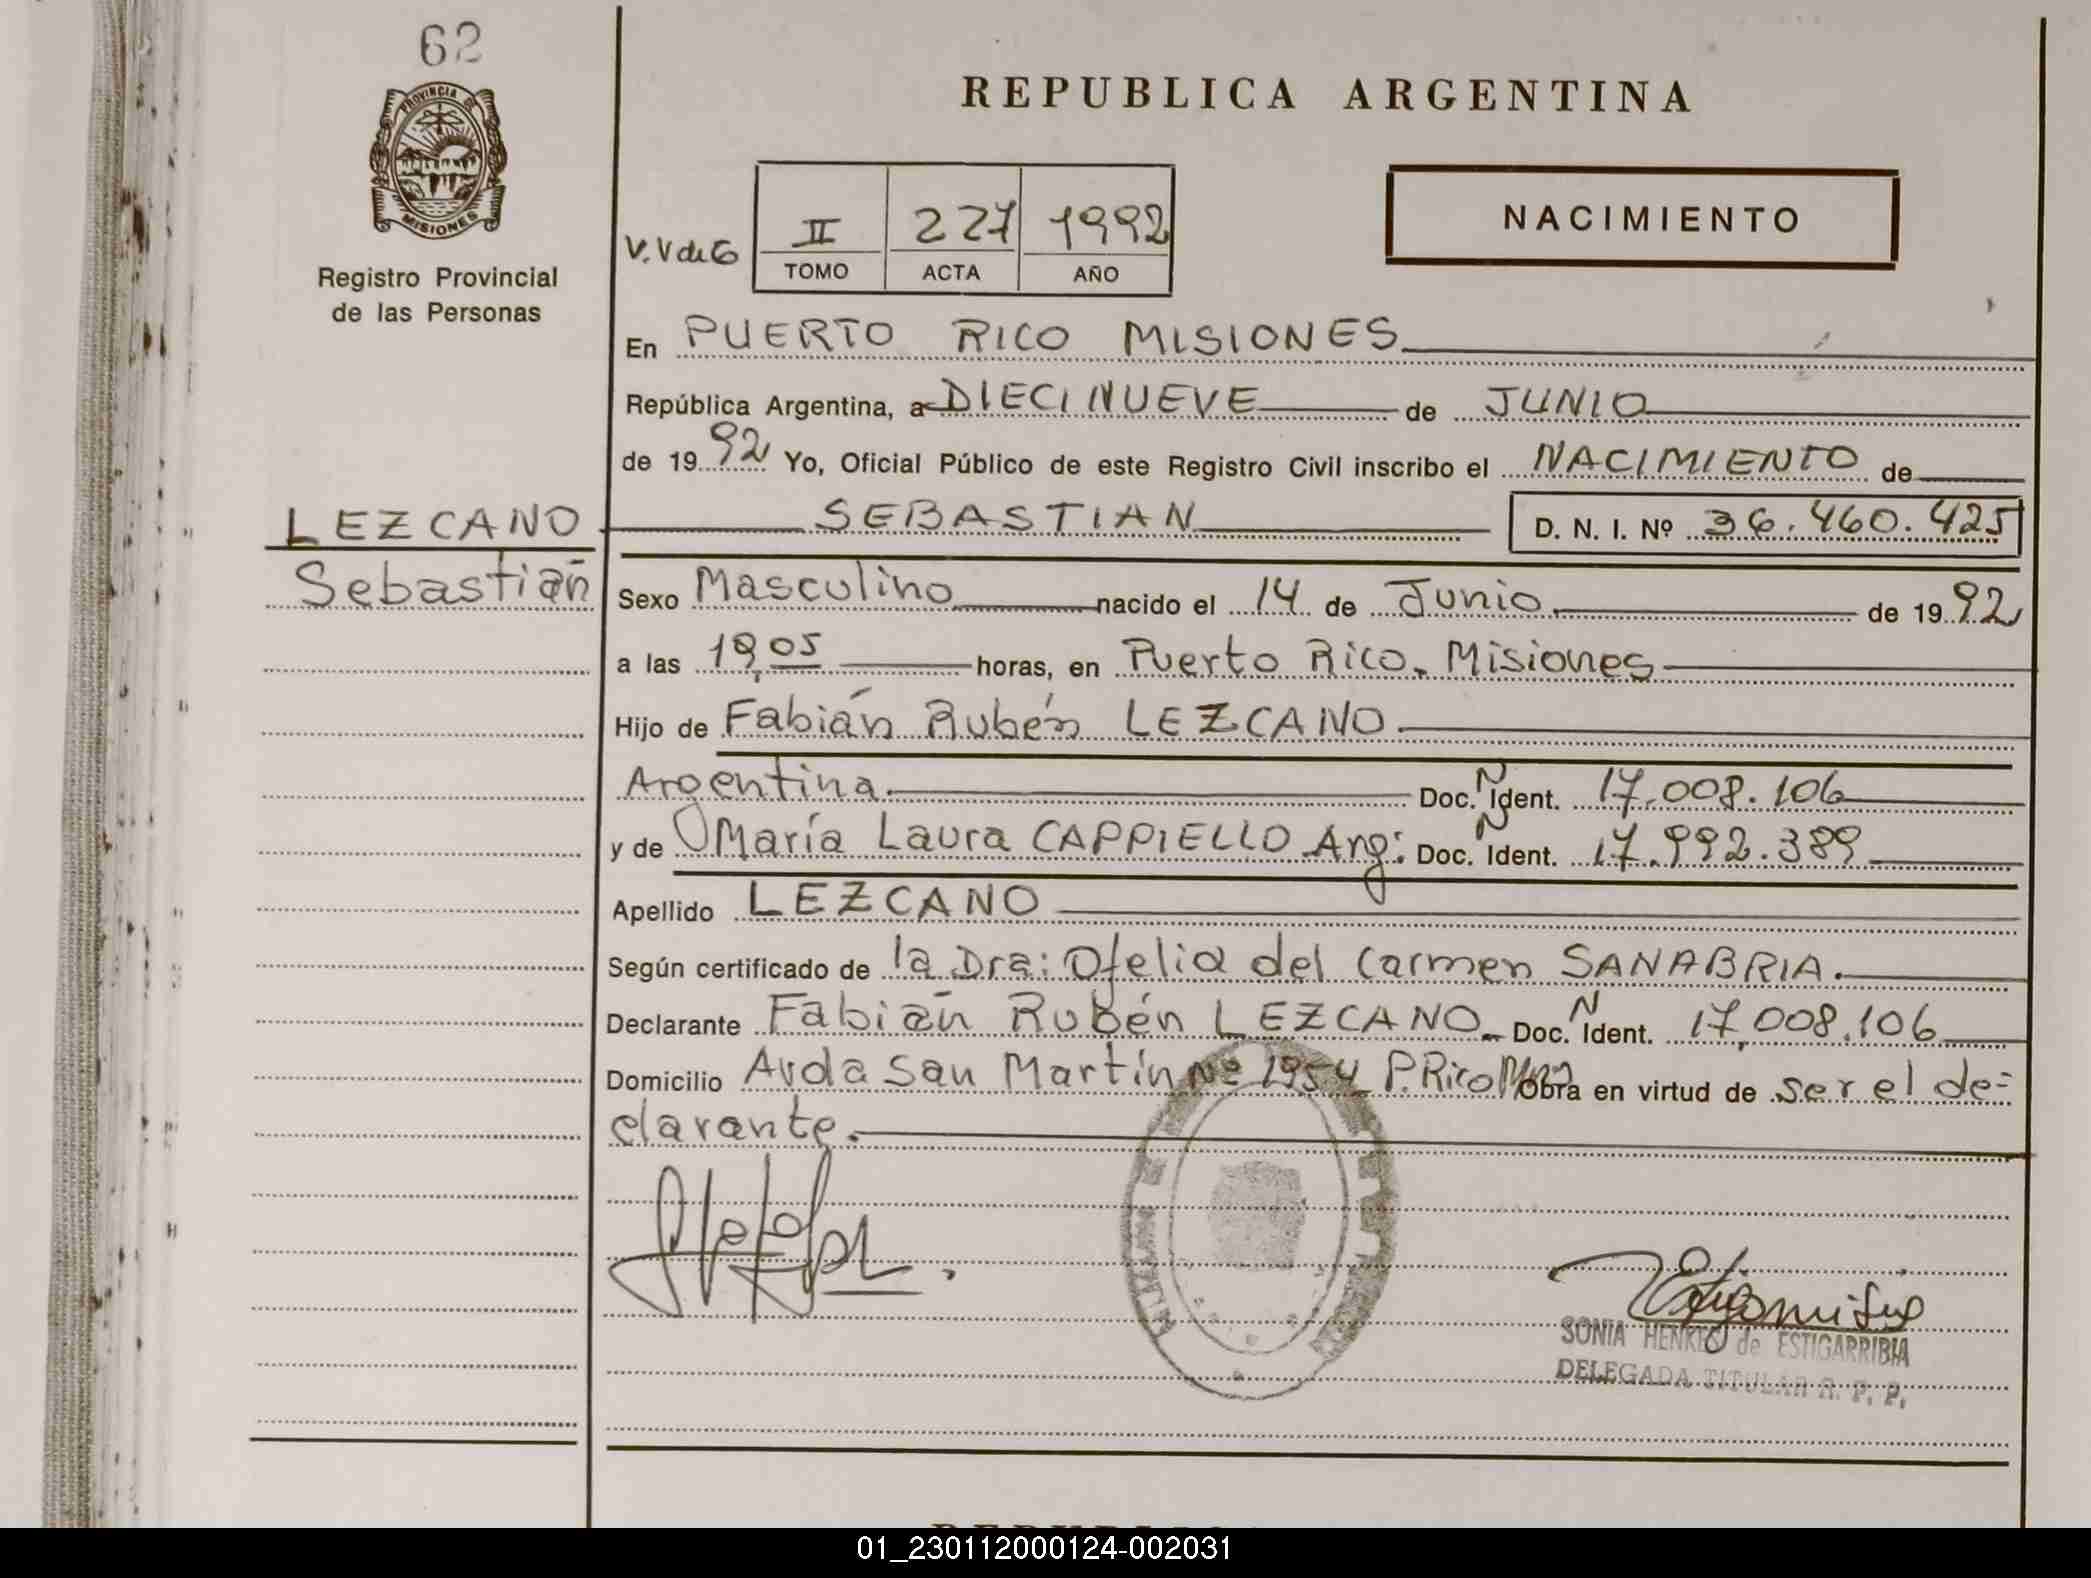 62
REPUBLICA ARGENTINA
PROVINCIA DE
MISIONES
Registro Provincial
de las Personas
NACIMIENTO
V.V de G
II 227 1992
TOMO ACTA AÑO
En PUERTO RICO MISIONES
República Argentina, a DIECINUEVE de JUNIO
de 19 92 Yo, Oficial Público de este Registro Civil inscribo el NACIMIENTO de
LEZCANO
SEBASTIAN D. N. I. Nº 36.460.425
Sebastián
Sexo Masculino nacido el 14 de Junio de 19 92
a las 19,05 horas, en Puerto Rico. Misiones
Hijo de Fabián Rubén LEZCANO
Argentina Doc. N Ident. 17.008.106
y de María Laura CAPPIELLO Arg: Doc. N Ident. 17.992.389
Apellido LEZCANO
Según certificado de la Dra: Ofelia del Carmen SANABRIA.
Declarante Fabián Rubén LEZCANO. Doc. N Ident. 17.008.106
Domicilio Avda San Martín Nº 1954 P.Rico Mnes Obra en virtud de ser el de=
clarante.
SONIA HENRIQ de ESTIGARRIBIA
DELEGADA TITULAR R. P. P.
01_230112000124-002031